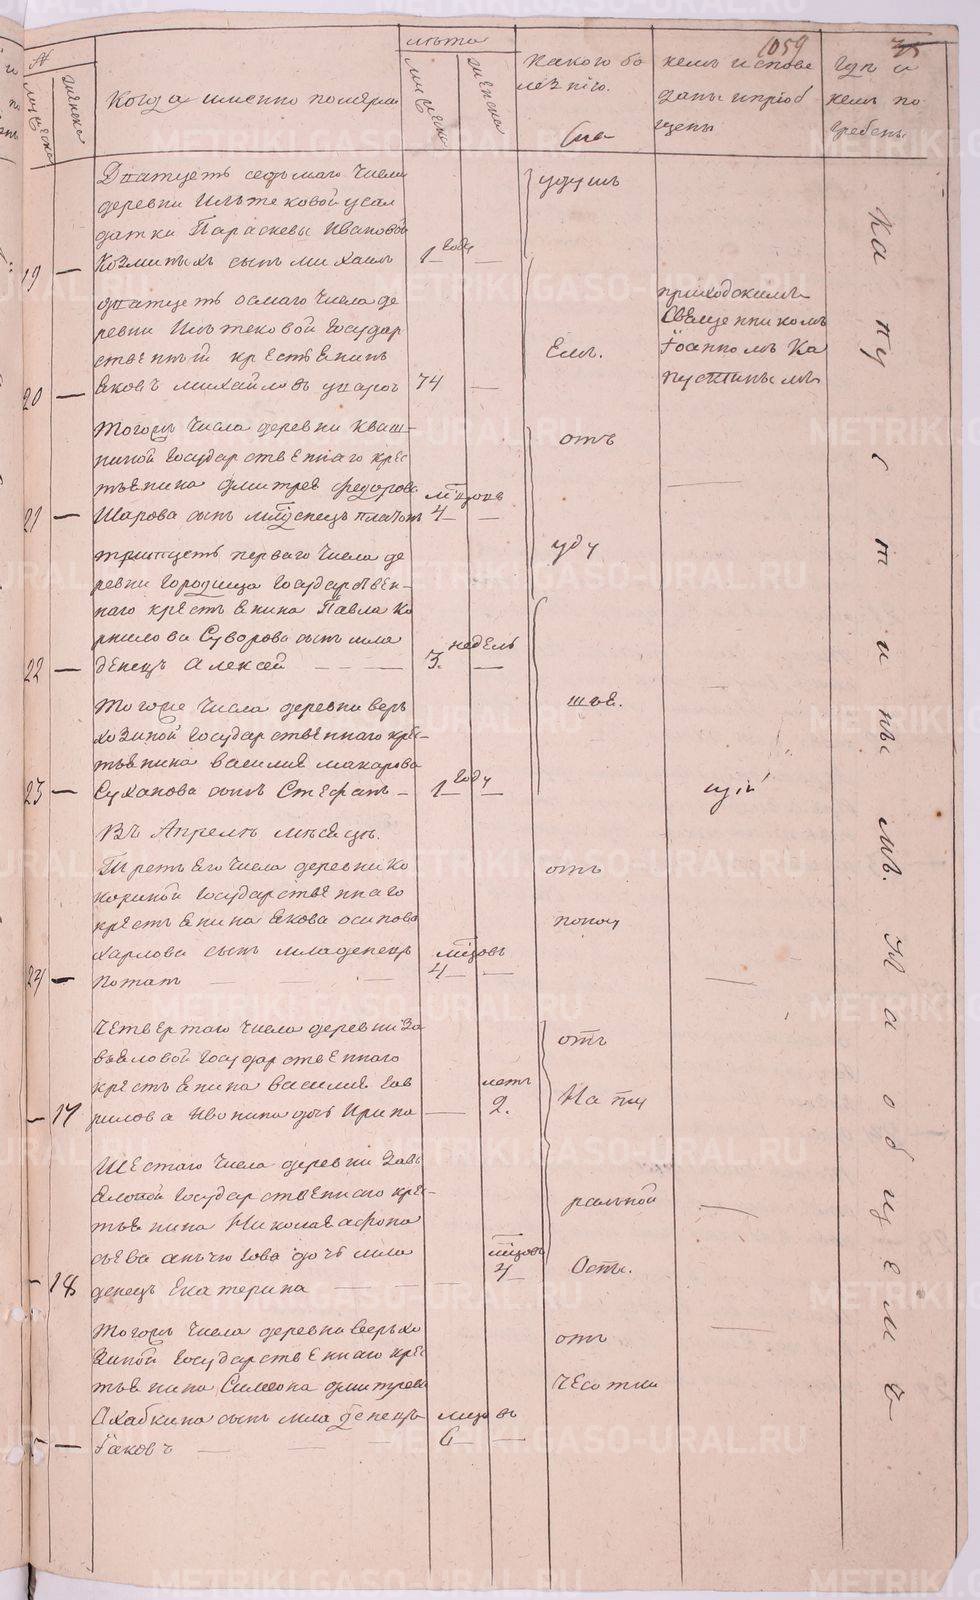 1059 75
№
лѣта
мужеска
женска
Когда именно померли
мужеска
женска
какою бо
лезнiю.
кемъ исповѣ
даны и прiоб
щены
Гдѣ и
кемъ по
гребены.
Дватцеть седьмаго числа
деревни Ильтековой у сол
датки Параскевы Ивановой
19 — Козминыхъ сынъ Михаилъ 1 году —
удушь
дватцеть осмаго числа де
ревни Ильтековой государ
ственный крестьянинъ
20 — Яковъ Михайловъ 74 —
Емъ.
приходскимъ
Священникомъ
Iоанномъ Ка
пустинымъ
Тогожъ числа деревни Кваш
ниной государственнаго крес
тьянина Дмитрея Федорова
21 — Шарова сынъ младенецъ Платонъ 4 мѣсяцовъ —
отъ
тритцеть перваго числа де
ревни Городища государствен-
наго крестьянина Павла Ко
рнилова Суворова сынъ мла
22 — денецъ Алексей — — — 3. недель —
уду
Тогоже числа деревни Верх
хозиной государственнаго крес-
тьянина Василия Макарова
23 — Суханова сынъ Стефанъ — 1 году —
шья.
Въ Апрелѣ мѣсяцѣ.
Третьего числа деревни Ко
кориной государственнаго
крестьянина Якова Осипова
Харлова сынъ младенецъ
24 — Потапъ — — — 4 мѣсяцовъ —
отъ
поносу
Четвертаго числа деревни За
вьяловой государственнаго
крестьянина Василия Гав
— 17 рилова Ивонина дочь Ирина — 2. летъ
отъ
Шестаго числа деревни Завь
яловой государственнаго крес-
тьянина Николая Афона
сьева дочь мла
— 18 денецъ Екатерина — — 4 мѣсяцовъ
ральной
Оспы.
Тогожъ числа деревни Верхо
зиной государственнаго крес
тьянина Симеона Дмитрева
Охабкина сынъ младенецъ
— Iаковъ — — — 6 мѣсяцовъ —
отъ
чесотки
Капустинымъ. На общемъ